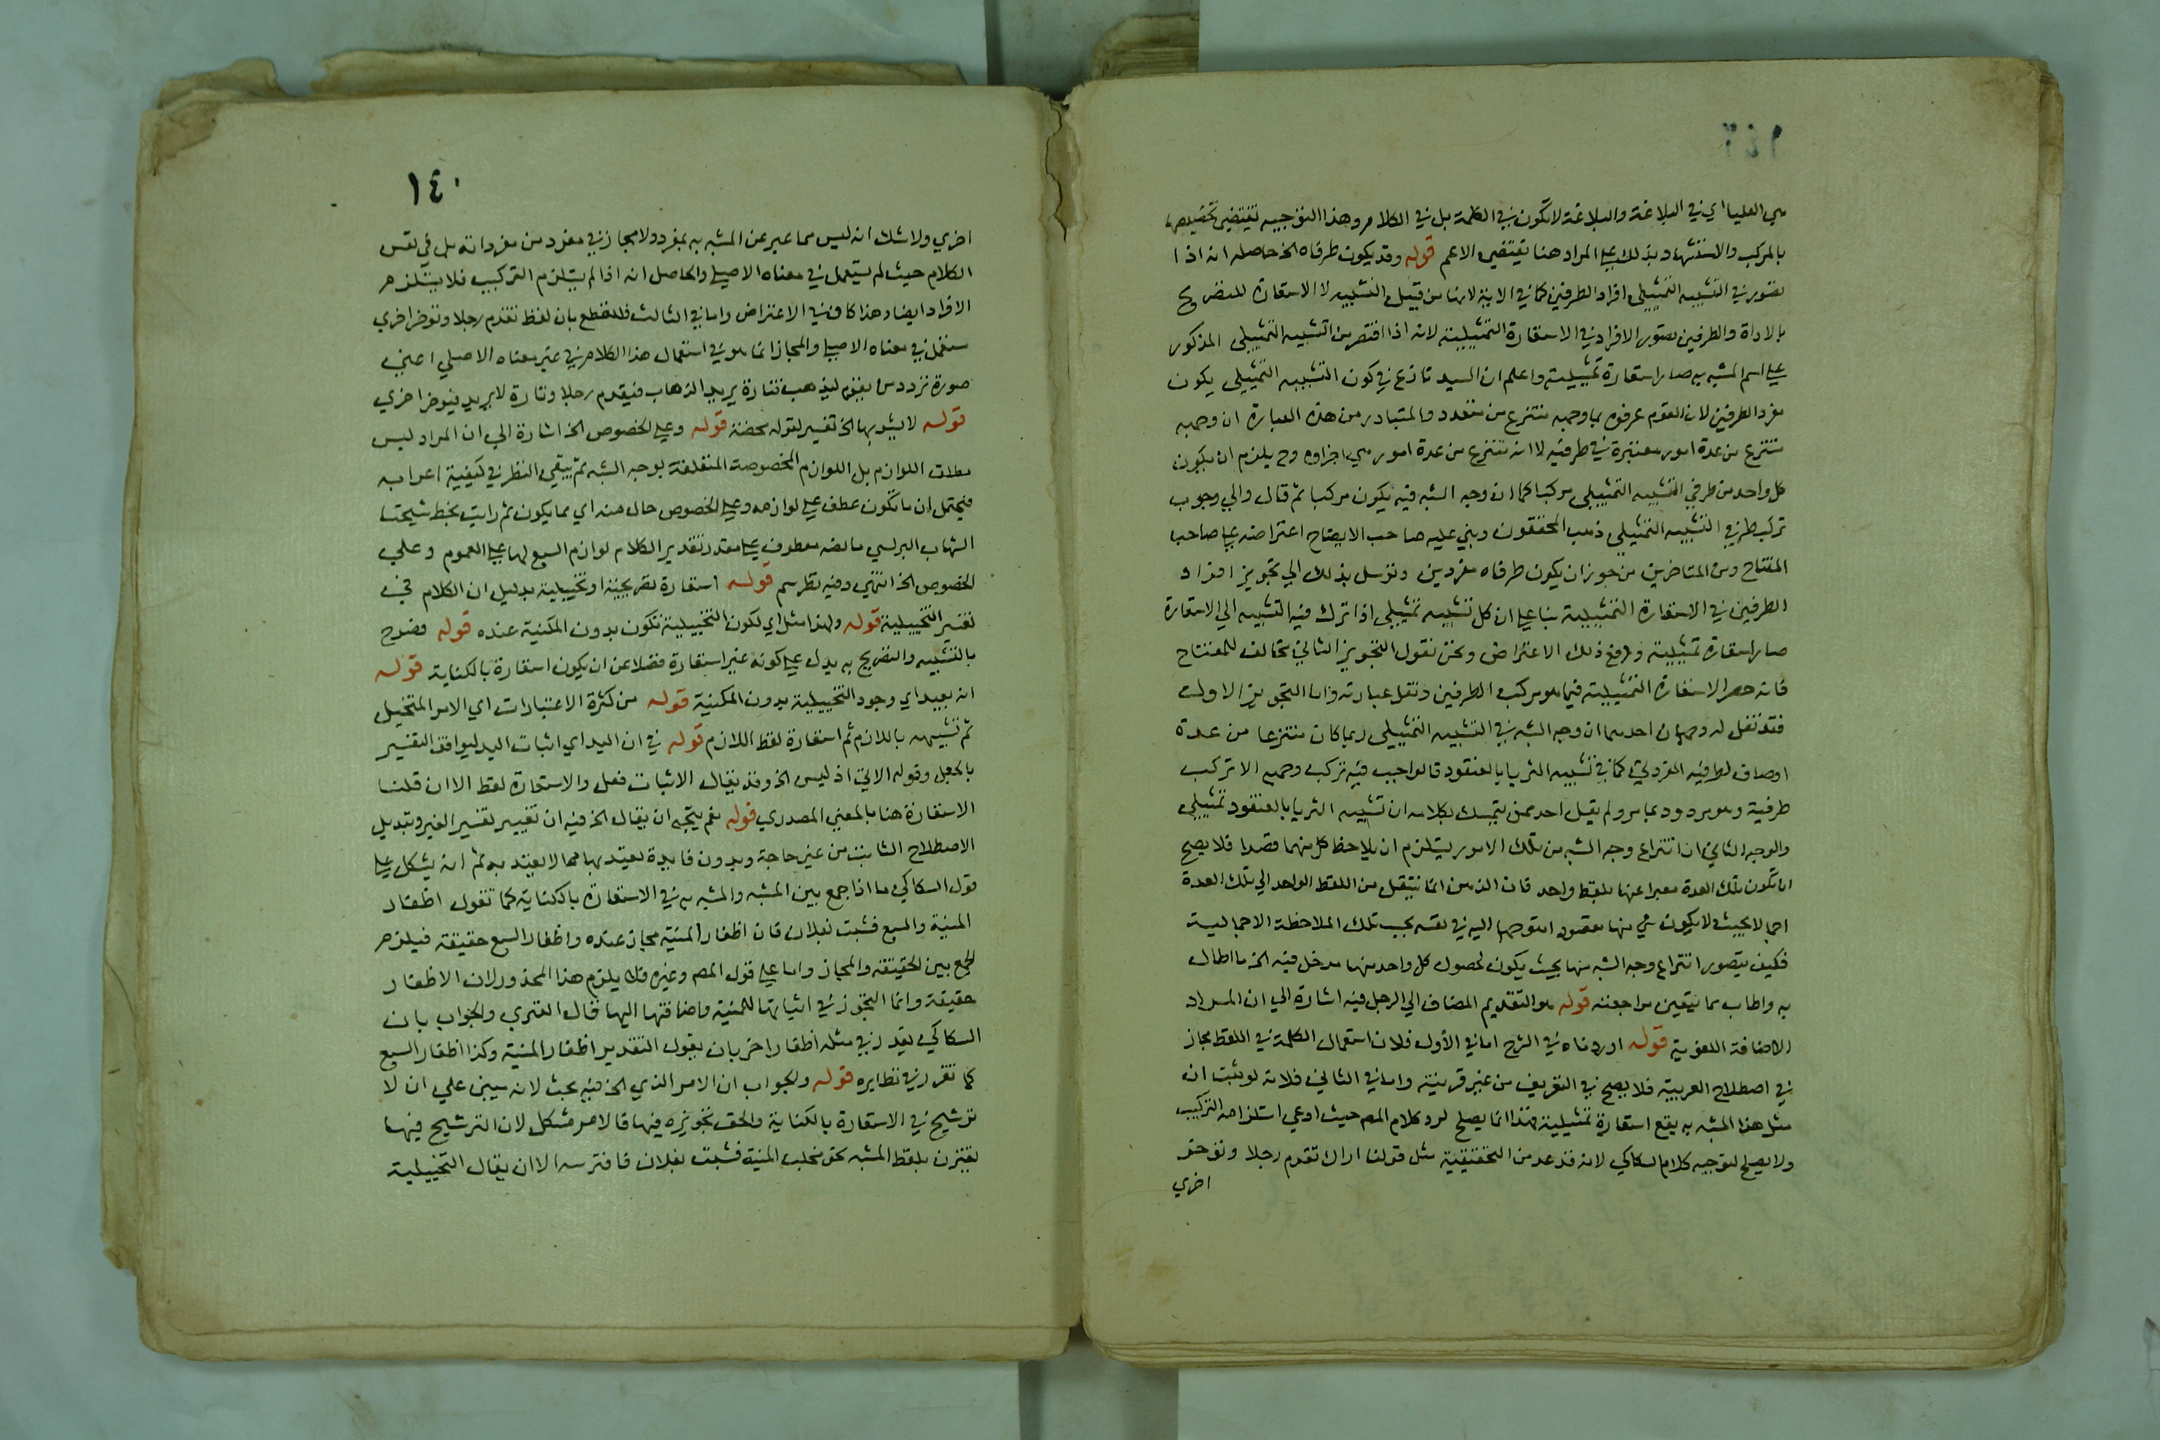 هي العليا اي في البلاغة والبلاغة لا تكون في الكلمة بل في الكلام وهذا التوجيه يقتضي تخصيصه
بالمركب والاستشهاد بذلك علي المراد هنا يقتضي الاعم قوله وقد يكون طرفاه الخ حاصله انه اذا
تصور في التشبيه التمثيلي افراد الطرفين كما في الاية لانها من قبيل التشبيه لا الاستعارة للتصريح
بالاداة والطرفين يتصور الافراد في الاستعارة التمثيلية لانه اذا اقتصر من التشبيه التمثيلي المذكور
علي اسم المشبه به صار استعارة تمثيلية واعلم ان السيد نازع في كون التشبيه التمثيلي يكون
مفرد الطرفين لان القوم عرفوه بما وجهه منتزع من متعدد والمتبادر من هذه العبارة ان وجهه
منتزع من عدة امور معتبرة في طرفيه لا انه منتزع من عدة امور هي اجزاوه وح يلزم ان يكون
كل واحد من طرفي التشبيه التمثيلي مركبا كما ان وجه الشبه فيه يكون مركبا ثم قال والي وجوب
تركيب طرفي التشبيه التمثيلي ذهب المحققون وبني عليه صاحب الايضاح اعتراضه علي صاحب
المفتاح ومن المتاخرين من جوز ان يكون طرفاه مفردين وتوسل بذلك الي تجويز افراد
الطرفين في الاستعارة التمثيلية بنا علي ان كل تشبيه تمثيلي اذا ترك فيه التشبيه الي الاستعارة
صار استعارة تمثيلية ودفع ذلك الاعتراض ونحن نقول التجويز الثاني مخالف للمفتاح
فانه حصر الاستعارة التمثيلية فيما هو مركب الطرفين ونقل عبارته واما التجويز الاول
فقد نقل له وجهان احدهما ان وجه الشبه في التشبيه التمثيلي ربما كان منتزعا من عدة
اوصاف لطرفيه المفردين كما في تشبيه الثريا بالعنقود فالواجب فيه تركيب وجهه لا تركيب
طرفيه وهو مردود بما مر ولم يقل احد ممن يتمسك بكلامه ان تشبيه الثريا بالعنقود تمثيلي
والوجه الثاني ان انتزاع وجه الشبه من تلك الامور يستلزم ان يلاحظ كل منهما قصدا فلا يصح
ان تكون تلك العدة معبرا عنها بلفظ واحد فان الذهن انما ينتقل من اللفظ الواحد الي تلك العدة
اجمالا بحيث لا يكون شي منها مقصودا متوجها اليه في نفسه بحسب تلك الملاحظة الاجمالية
فكيف يتصور انتزاع وجه الشبه منها بحيث يكون لحصول كل واحد منها مدخل فيه الخ ما اطال
به واطاب مما يتعين مراجعته قوله هو التقديم المضاف الي الرجل فيه اشارة الي ان المراد
الاضافة اللغوية قوله اوردناه في الشرح اما في الأول فلان استعمال الكلمة في اللفظ مجاز
في اصطلاح العربية فلا يصح في التعريف من غير قرينة واما في الثاني فلانه لو ثبت ان
مثل هذا المشبه به يقع استعارة تمثيلية فهذا انما يصلح لرد كلام المص حيث ادعي استلزامه التركيب
ولا يصلح لتوجيه كلام السكاكي لانه قد عد من التحقيقية مثل قولنا اراك تقدم رجلا وتؤخر
اخري
١٤٠
اخري ولا شك انه ليس مما عبر عن المشبه به بمفرد ولا مجاز في مفرد من مفرداته بل في نفس
الكلام حيث لم يستعمل في معناه الاصلي والحاصل انه اذا لم يستلزم التركيب فلا يستلزم
الافراد ايضا وهذا كاف في الاعتراض واما في الثالث فللقطع بان لفظ تقدم رجلا وتوخر اخري
مستعمل في معناه الاصلي والمجاز انما هو في استعمال هذا الكلام في غير معناه الاصلي اعني
صورة تردد من يقوم ليذهب فتارة يريد الذهاب فيقدم رجلا وتارة لا يريد فيوخر اخري
قوله لا يشوبها الخ تفسير لقوله محضة قوله وعلي الخصوص الخ اشارة الي ان المراد ليس
مطلق اللوازم بل اللوازم المخصوصة المتعلقة بوجه الشبه ثم يبقي النظر في كيفية اعرابه
فيحتمل ان ما تكون عطف علي لوازمه وعلي الخصوص حال منه اي مما يكون ثم رايت بخط شيخنا
الشهاب البرلسي ما نصه معطوف علي مقدر تقدير الكلام لوازم السبع لها علي العموم وعلي
الخصوص الخ انتهي وفيه نظر سم قوله استعارة تصريحية او تخييلية بدليل ان الكلام في
تفسير التخييلية قوله ولهذا مثل اي لكون التخييلية تكون بدون المكنية عنده قوله فصرح
بالتشبيه والتصريح به يدل علي كونه غير استعارة فضلا عن ان يكون استعارة بالكناية قوله
انه بعيد اي وجود التخييلية بدون المكنية قوله من كثرة الاعتبارات اي الامر المتخيل
ثم تشبيهه باللازم ثم استعارة لفظ اللازم قوله في ان اليد اي اثبات اليد ليوافق التفسير
بالجعل وقوله الاتي اذ ليس الخ وقد يقال الاثبات فعل والاستعارة لفظ الا ان قلنا
الاستعارة هنا بالمعني المصدري قوله نعم يتجه ان يقال الخ فيه ان تغيير تفسير الغير وتبديل
الاصطلاح الثابت من غير حاجة وبدون فايدة يعتد بها مما لا يعتد به ثم انه يشكل علي
قول السكاكي ما اذا جمع بين المشبه والمشبه به في الاستعارة بالكناية كما تقول اظفار
المنية والسبع نشبت بفلان فان اظفار المنية مجاز عنده واظفار السبع حقيقة فيلزم
الجمع بين الحقيقة والمجاز واما علي قول المص وغيره فلا يلزم هذا المحذور لان الاظفار
حقيقة وانما التجوز في اثباتها للمنية واضافتها اليها قال الفنري والجواب بان
السكاكي يقدر في مثله اظفار اخر بان يقول التقدير اظفار المنية وكذا اظفار السبع
كما تقرر في نظايره قوله والجواب ان الامر الذي الخ فيه بحث لانه يبتني علي ان لا
ترشيح في الاستعارة بالكناية والحق تجويزه فيها فالامر مشكل لان الترشيح فيها
يقترن بلفظ المشبه نحو مخلب المنية نشبت بفلان فافترسه الا ان يقال التخييلية